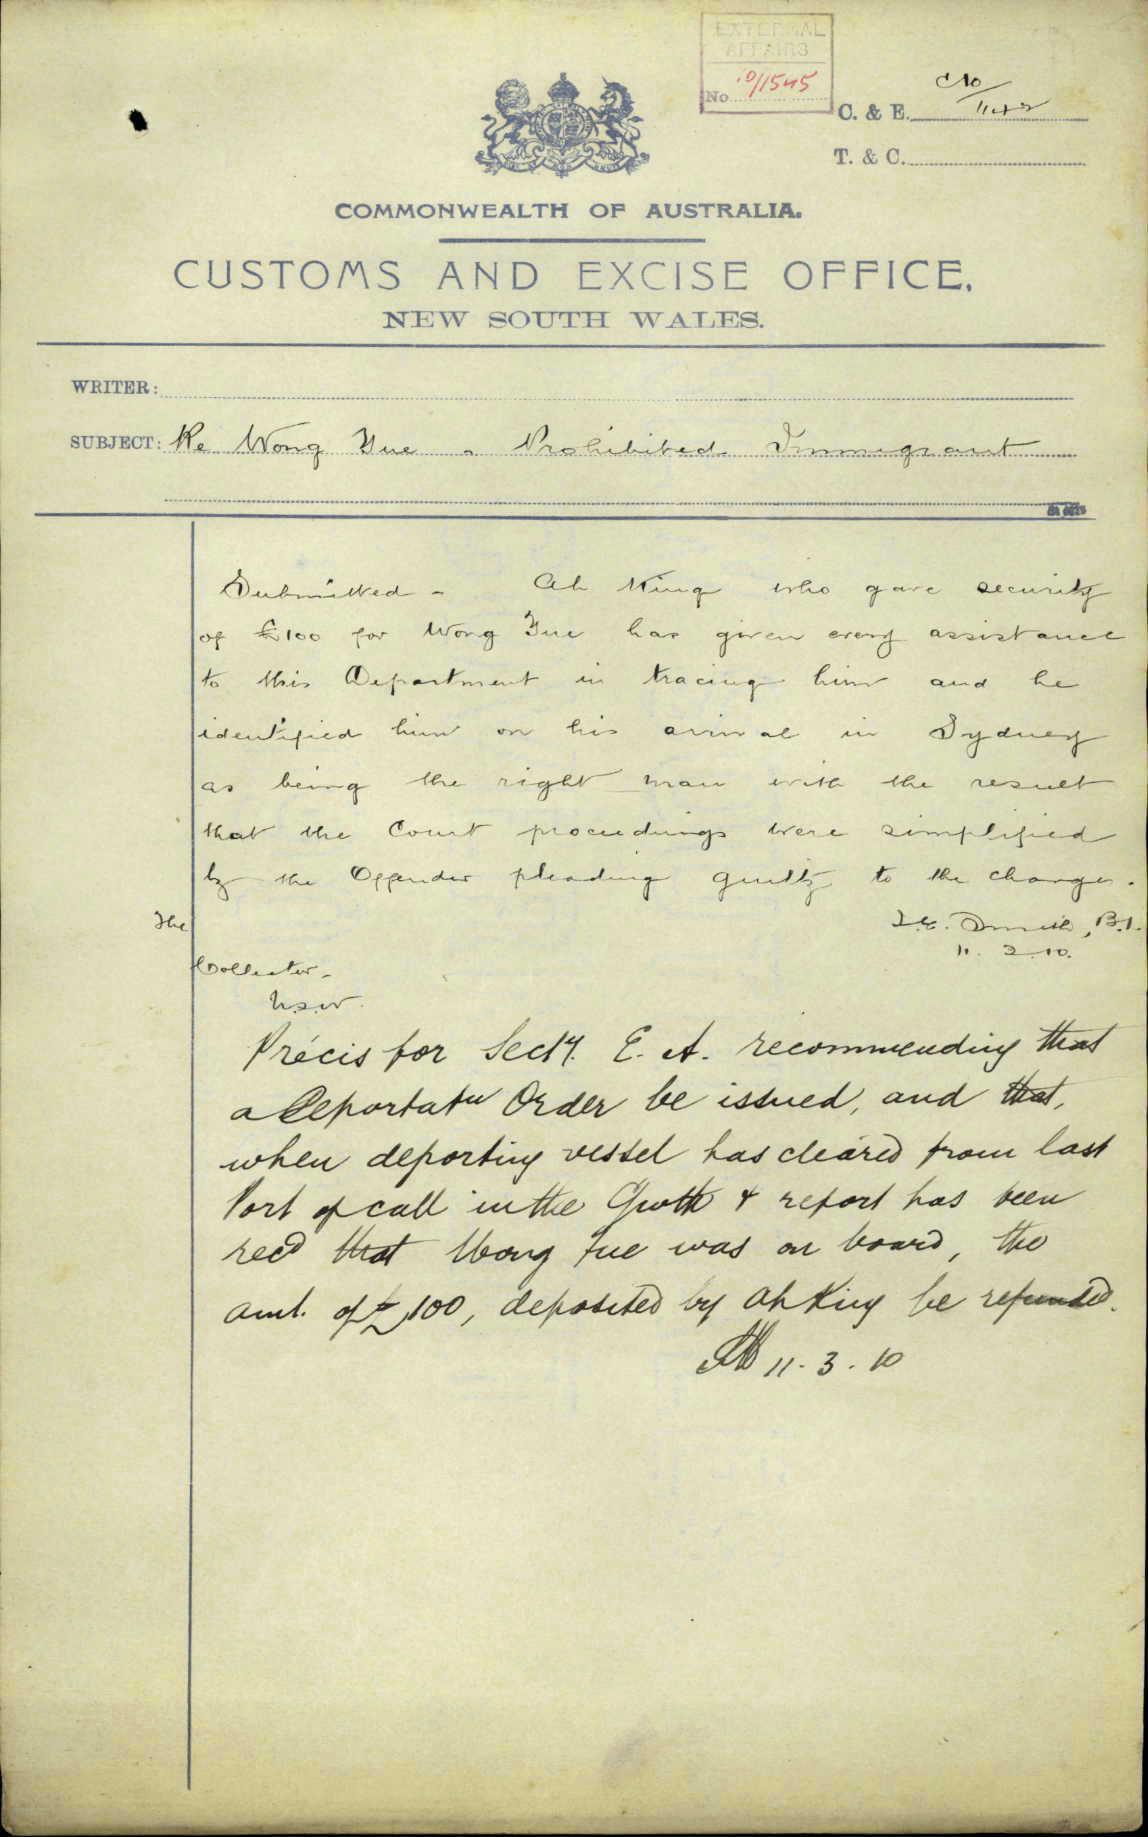 EXTERNAL
AFFAIRS
No 10/1545
C. & E. C10/
T. & C.
COMMONWEALTH OF AUSTRALIA.
CUSTOMS AND EXCISE OFFICE,
NEW SOUTH WALES.
WRITER:
SUBJECT: Re Wong Yue - Prohibited Immigrant
Submitted - Ah King who gave security
of £100 for Wong Yue has given every assistance
to this Department in tracing him and he
identified him on his arrival in Sydney
as being the right man with the result
that the Court proceedings were simplified
by the Offender pleading guilty to the charge.
Smith, B.I.
11.3.10.
The
Collector -
N.S.W.
Précis for Secty. E. A. recommending that
a Deportatn Order be issued, and that,
when deporting vessel has cleared from last
Port of call in the Cwth & report has been
recd that Wong Yue was on board, the
amt. of £100, deposited by Ah King be refunded.
11.3.10